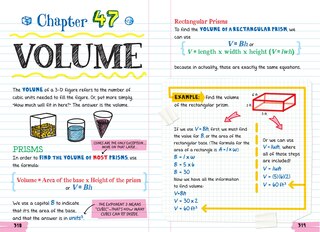 Chapter 47
VOLUME
The VOLUME of a 3-D figure refers to the number of
cubic units needed to fill the figure. Or, put more simply,
"How much will fit in here?" The answer is the volume.
CONES ARE THE ONLY EXCEPTION.
MORE ON THAT LATER.
PRISMS
In order to FIND THE VOLUME OF MOST PRISMS, use
the formula:
Volume = Area of the base x Height of the prism
or V = Bh
We use a capital B to indicate
that it's the area of base,
and that the answer is in units³.
THE EXPONENT 3 MEANS
"CUBIC"-THAT'S HOW MANY
CUBES CAN FIT INSIDE.
318
Rectangular Prisms
To find the VOLUME OF A RECTANGULAR PRISM we
can use
V = Bh or
V = length x width x height (V = lwh)
because in actuality, these are exactly the same equations.
EXAMPLE: Find the volume
of the rectangular prism.
If we use V = Bh first we must find
the value for B or the area of the
rectangular base. (The formula for the
area of a rectangle is A = l x w.)
B = l x w
B = 5 x 6
B = 30
Now we have all the information
to find volume:
V = Bh
V = 30 x 2
V = 60 ft³
Or we can use
V = lwh, where
all of these steps
are included!
V = lwh
V = (5)(6)(2)
V = 60 ft³
319